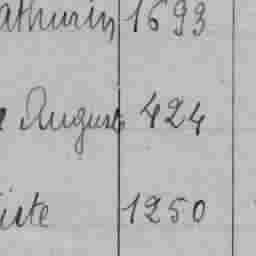 athurin 1693
Auguste 424
iste 1250